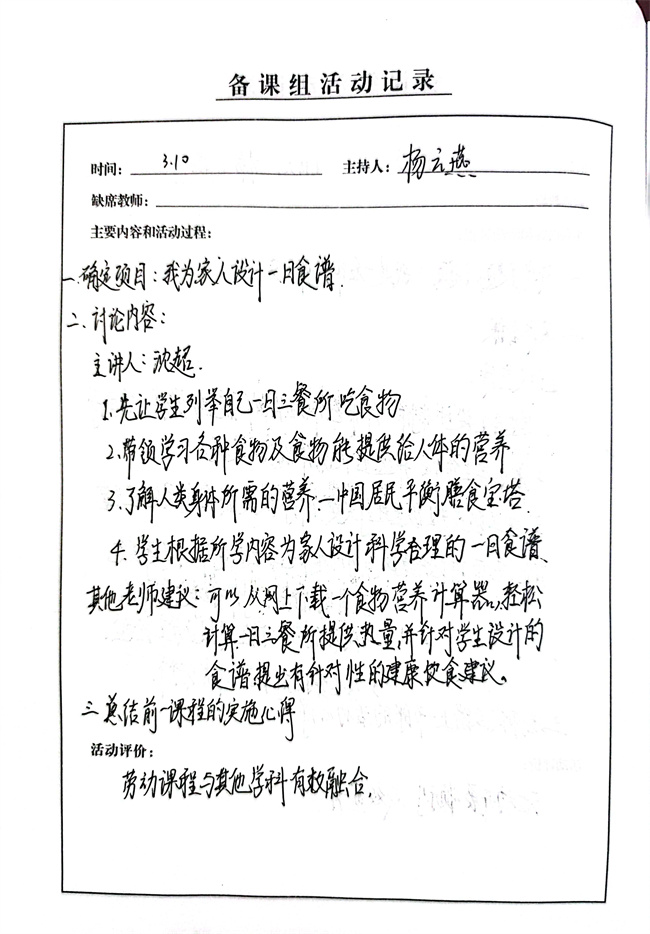 备课组活动记录
时间： 3.10 主持人： 杨云燕
缺席教师：
主要内容和活动过程：
一.确定项目：我为家人设计一日食谱.
二.讨论内容：
主讲人：沈超.
1.先让学生列举自己一日三餐所吃食物
2.带领学习各种食物及食物能提供给人体的营养
3.了解人类身体所需的营养.—中国居民平衡膳食宝塔.
4.学生根据所学内容为家人设计科学合理的一日食谱.
其他老师建议：可以从网上下载一个食物营养计算器,轻松
计算一日三餐所提供热量,并针对学生设计的
食谱提出有针对性的健康饮食建议。
三.总结前一课程的实施心得
活动评价：
劳动课程与其他学科有效融合.